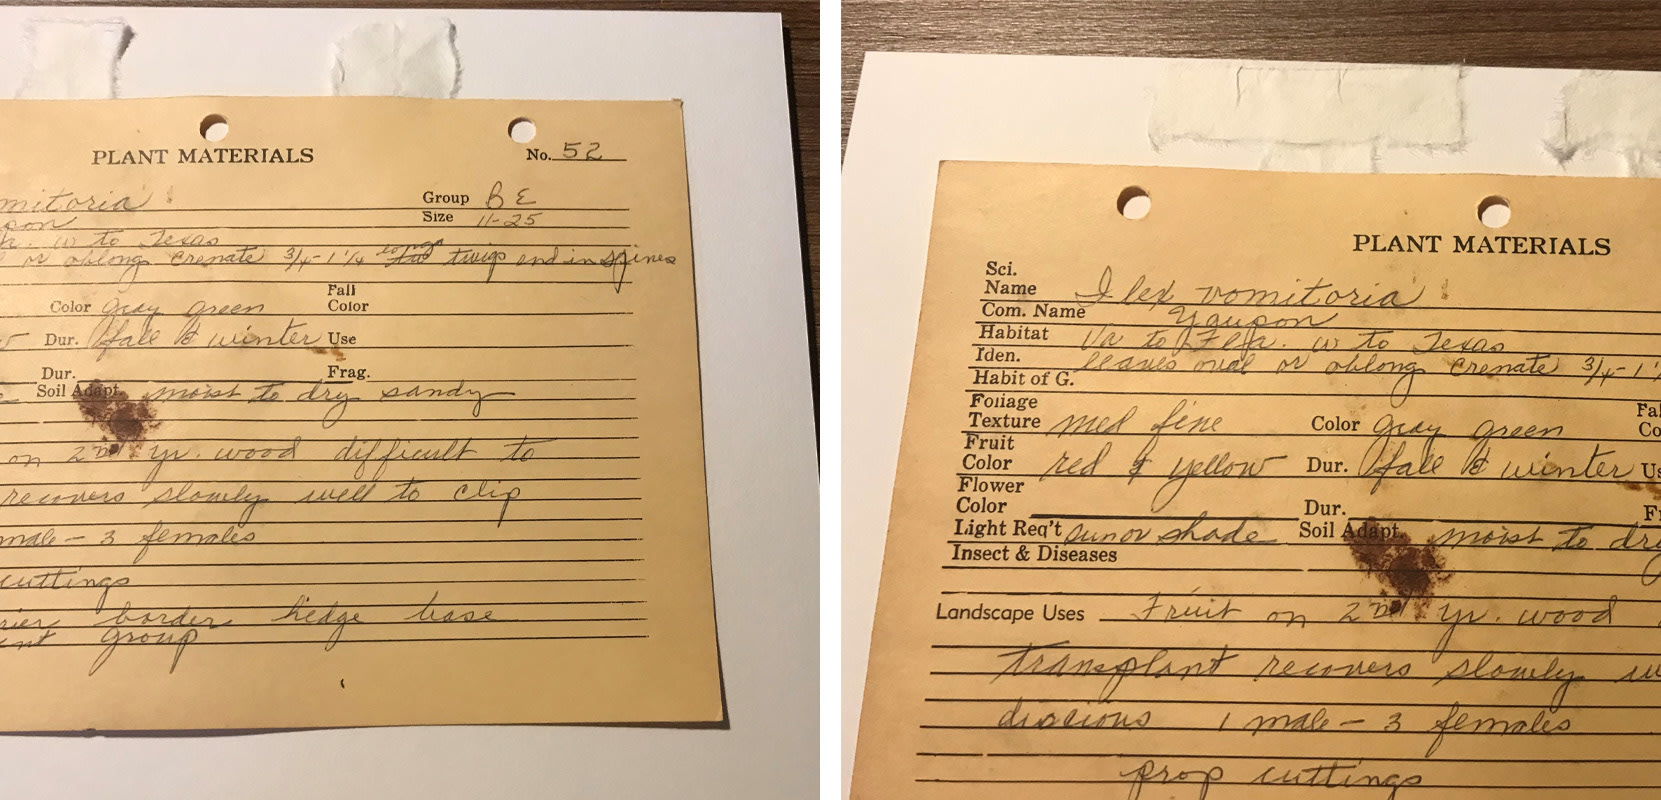 PLANT MATERIALS
No. 52
mitoria
Group B E
pon
Size 11-25
a. w to Texas
or oblong crenate 3/4-1 1/4 long twigs end in spines
Fall
Color gray green Color
Dur. fall & winter Use
Dur. Frag.
Soil Adapt. moist to dry sandy
on 2nd yr. wood difficult to
recovers slowly well to clip
male - 3 females
cuttings
rier border hedge base
group
PLANT MATERIALS
Sci.
Name Ilex vomitoria
Com. Name Yaupon
Habitat Va to Fla. w to Texas
Iden. leaves oval or oblong crenate 3/4-1 1/
Habit of G.
Foliage Fal
Texture med fine Color gray green Co
Fruit
Color red & yellow Dur. fall & winter Us
Flower
Color Dur. Fr
Light Req't sun or shade Soil Adapt. moist to dry
Insect & Diseases
Landscape Uses Fruit on 2nd yr. wood
transplant recovers slowly
diocious 1 male - 3 females
prop cuttings